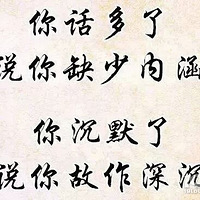 你话多了
说你缺少内涵
你沉默了
说你故作深沉